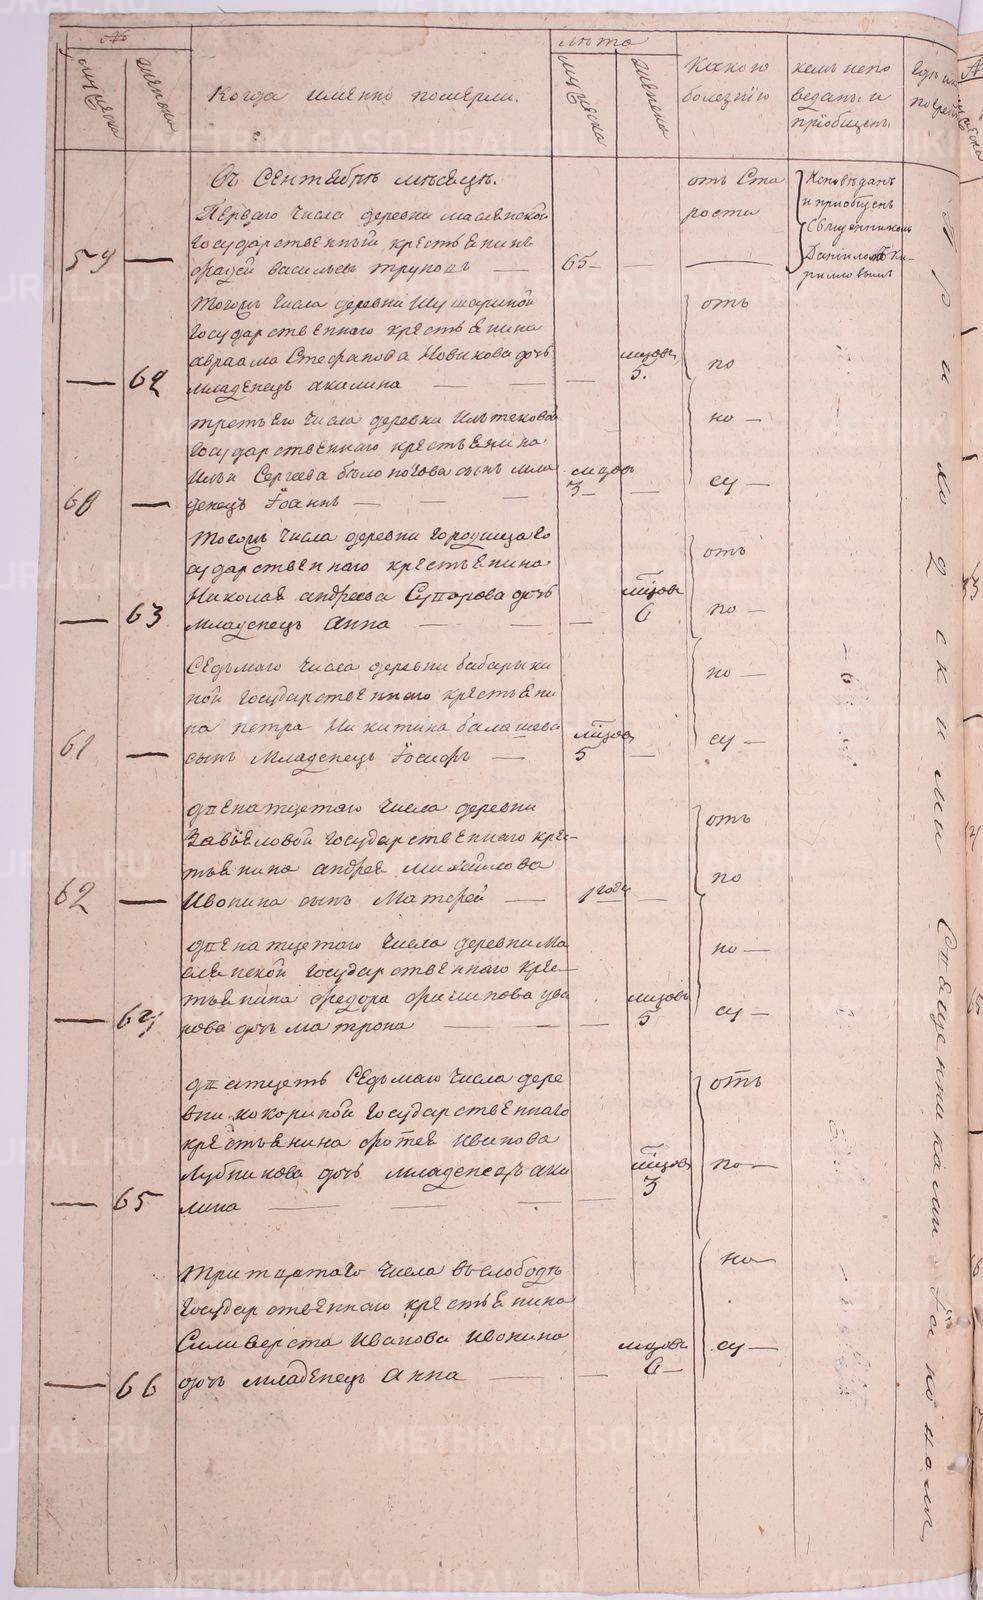 №
лѣта
мужеска
женска
Когда именно померли.
мужеска
женска
Какою болезнію
кемъ испо
ведыны и
пріобщены
въ Сентябрѣ месяцѣ.
Перваго числа деревни Маслянской
Государственный крестьянинъ
59
Фадей Васильевъ
65
отъ Ста
рости
Исповѣданъ
и пріобщенъ
Священникомъ
Данііломъ Ки-
рилловымъ
Тогожъ числа деревни Шушариной
Государственнаго крестьянина
Авраама Стефанова Новикова дочь
62
младенецъ Акилина
мцовъ
5.
отъ
по
третьяго числа деревни
Государственнаго крестьянина
Ильи Сергеева сынъ мла
60
денецъ Іоаннъ
мцовъ
3
но
су
Тогожъ числа деревни Городища Го
сударственнаго крестьянина
Николая Андреева дочь
63
младенецъ Анна
мцовъ
6
отъ
по
Седьмаго числа деревни Бабарыки
ной Государственнаго крестьяни
на Петра Никитина Балашева
61
сынъ младенецъ Іосифъ
мцовъ
5
но
су
двенатцетаго числа деревни
Завьяловой Государственнаго крес-
тьянина Андрея Михайлова
62
Ивонина сынъ Матфей
1 годъ
отъ
по
двенатцетаго числа деревни Ма
слянской Государственнаго крес-
тьянина Федора Филипова Ува
64
рова дочь Матрона
мцовъ
5
но
су
дватцеть Седьмаго числа дере
вни Кокориной Государственнаго
крестьянина Фотея Иванова
Лубникова дочь младенецъ Аки
65
лина
мцовъ
3
отъ
по
Тритцатаго числа въ слободѣ
Государственнаго крестьянина
Силиверста Иванова Ивонина
66
дочь младенецъ Анна
мцовъ
6
но
су
Приходскими Священниками Іаковомъ
METRIKI.GASO-URAL.RU